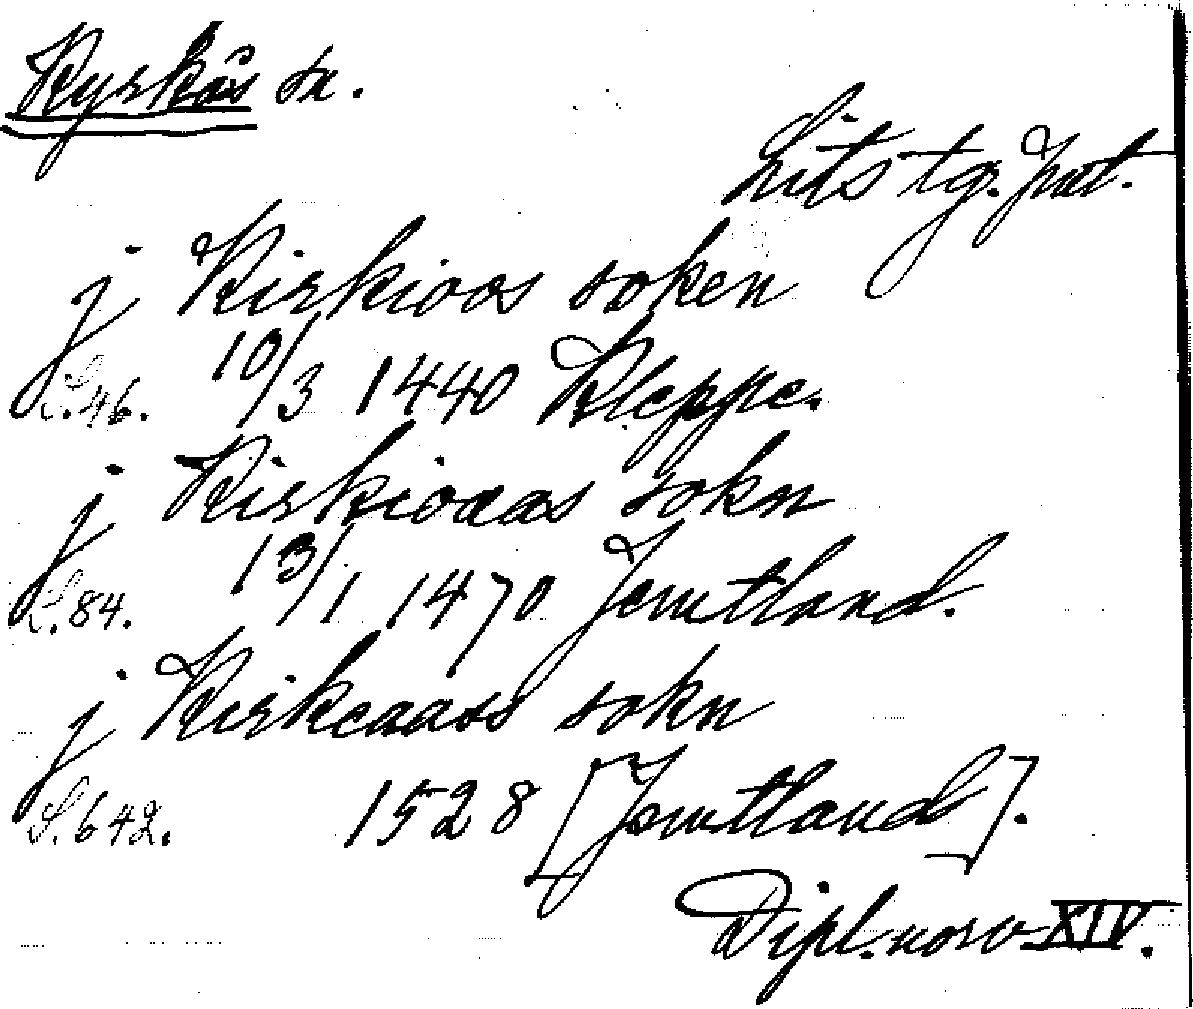 Kyrkås sn.
Lits tg. Jmt.
j Kirkioos soken
S. 46. 10/3 1440 Kleppe.
j Kirkioaas sokn
S. 84. 13/1 1470 Jemtland.
j Kirkeaass sokn
S. 642. 1528 [Jemtland].
Dipl. norv XIV.